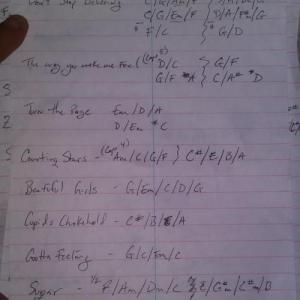 Don't Stop Believing C/G/Am/F
C/G/Em/F } D/A/F#m/G
F/C } G/D
The way you make me Feel (Cap 5) D/C } G/F
G/F *A } C/A# *D
Turn the Page Em/D/A
D/Em *C
Counting Stars - (Capo 4) Am/C/G/F } C#/E/B/A
Beatiful Girls - G/Em/C/D/G
Cupids Chokehold - C#/B/E/A
Gotta Feeling - G/C/Em/C
Sugar - 1/2 F/Am/Dm/C } E/G#m/C#m/B